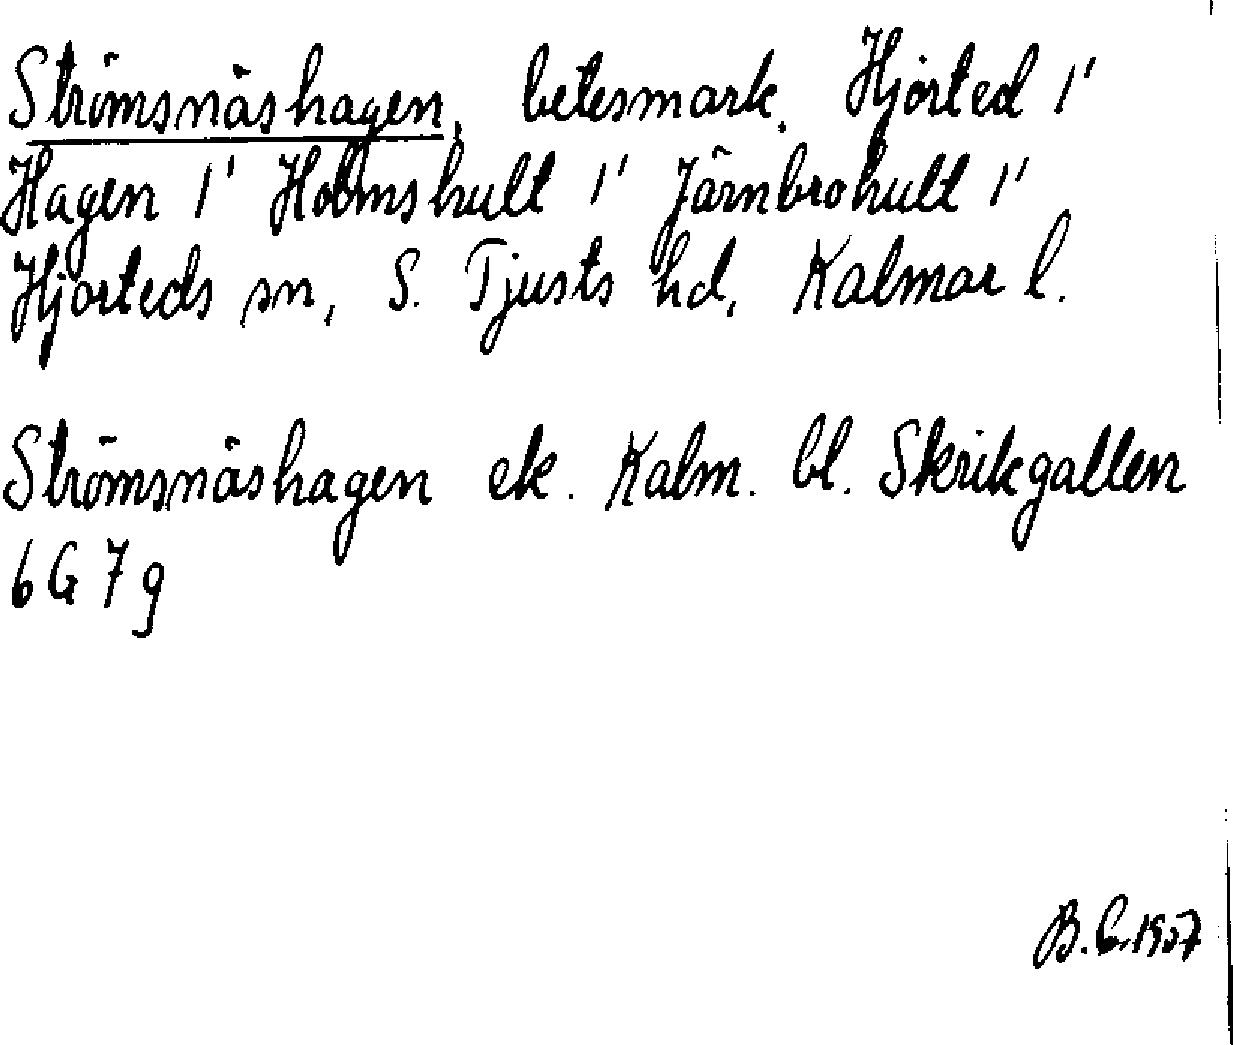 Strömsnäshagen, betesmark. Hjorted 1'
Hagen 1' Holmshult 1' Järnbrohult 1'
Hjorteds sn, S. Tjusts hd, Kalmar l.
Strömsnäshagen ek. Kalm. bl. Skrikgallen
6G 7g
1957